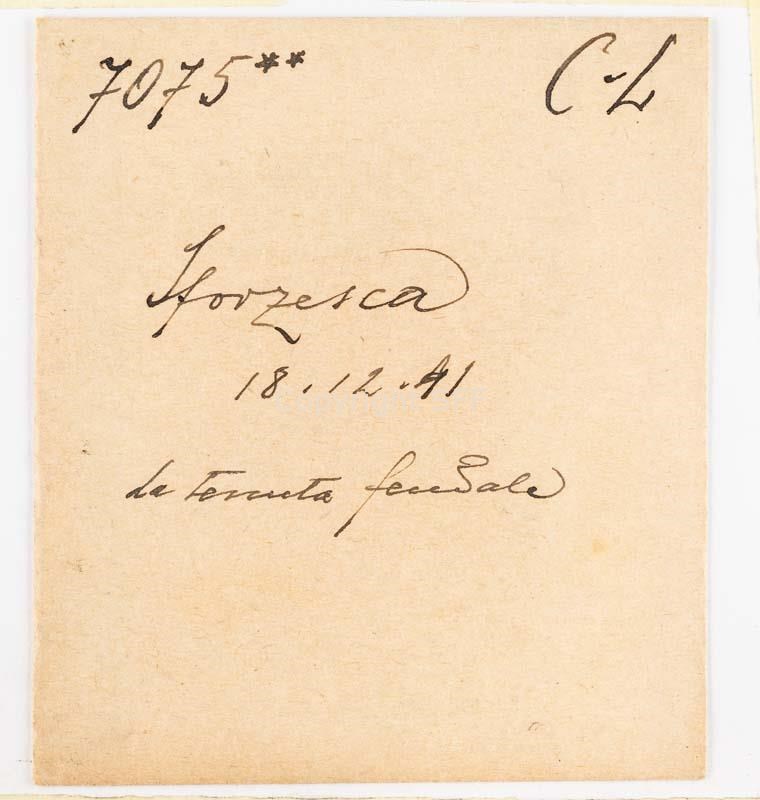 7075** C-L
Sforzesca
18.12.41
La tenuta feudale